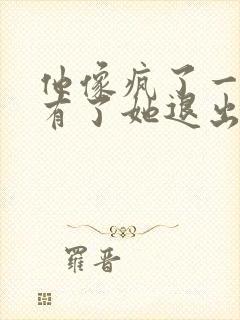 他像疯了一
有了她退出
羅晋